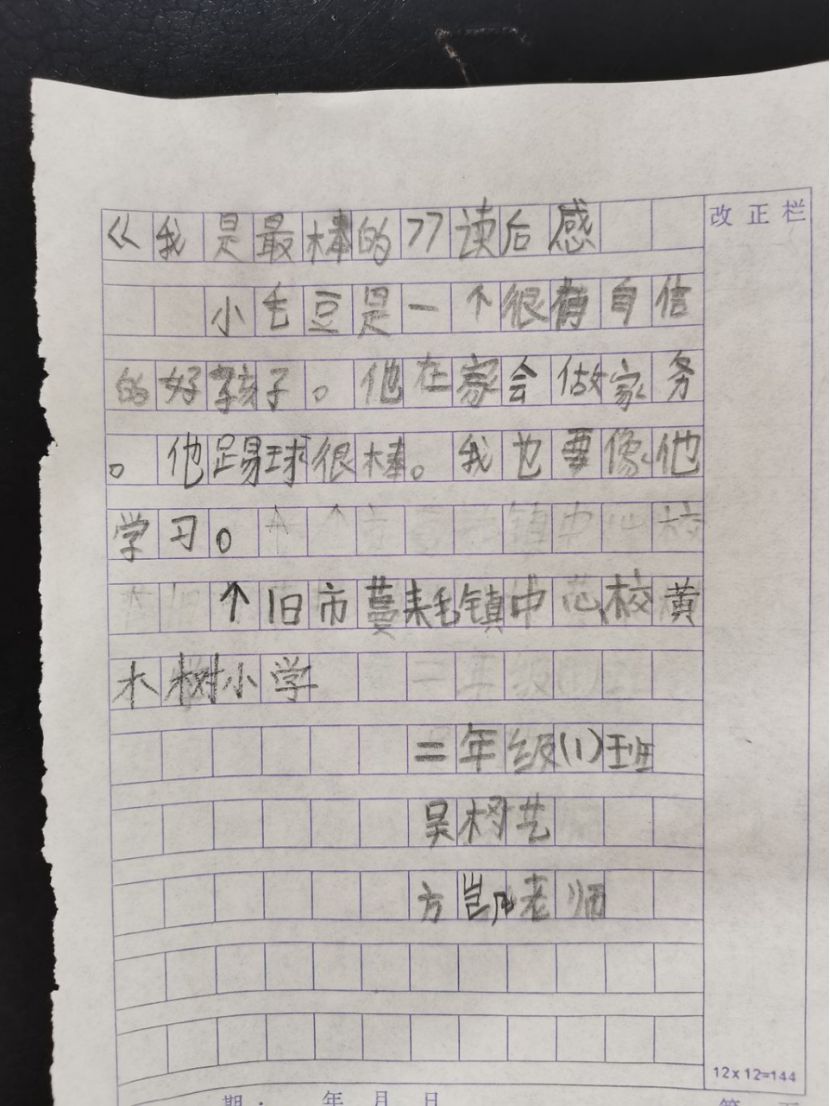 《我是最棒的》读后感
改正栏
小毛豆是一个很有自信
的好孩子。他在家会做家务
。他踢球很棒。我也要像他
学习。
个旧市蔓耗镇中心校黄
木树小学
二年级(1)班
吴树艺
方凯老师
12×12=144
期: 年 月 日